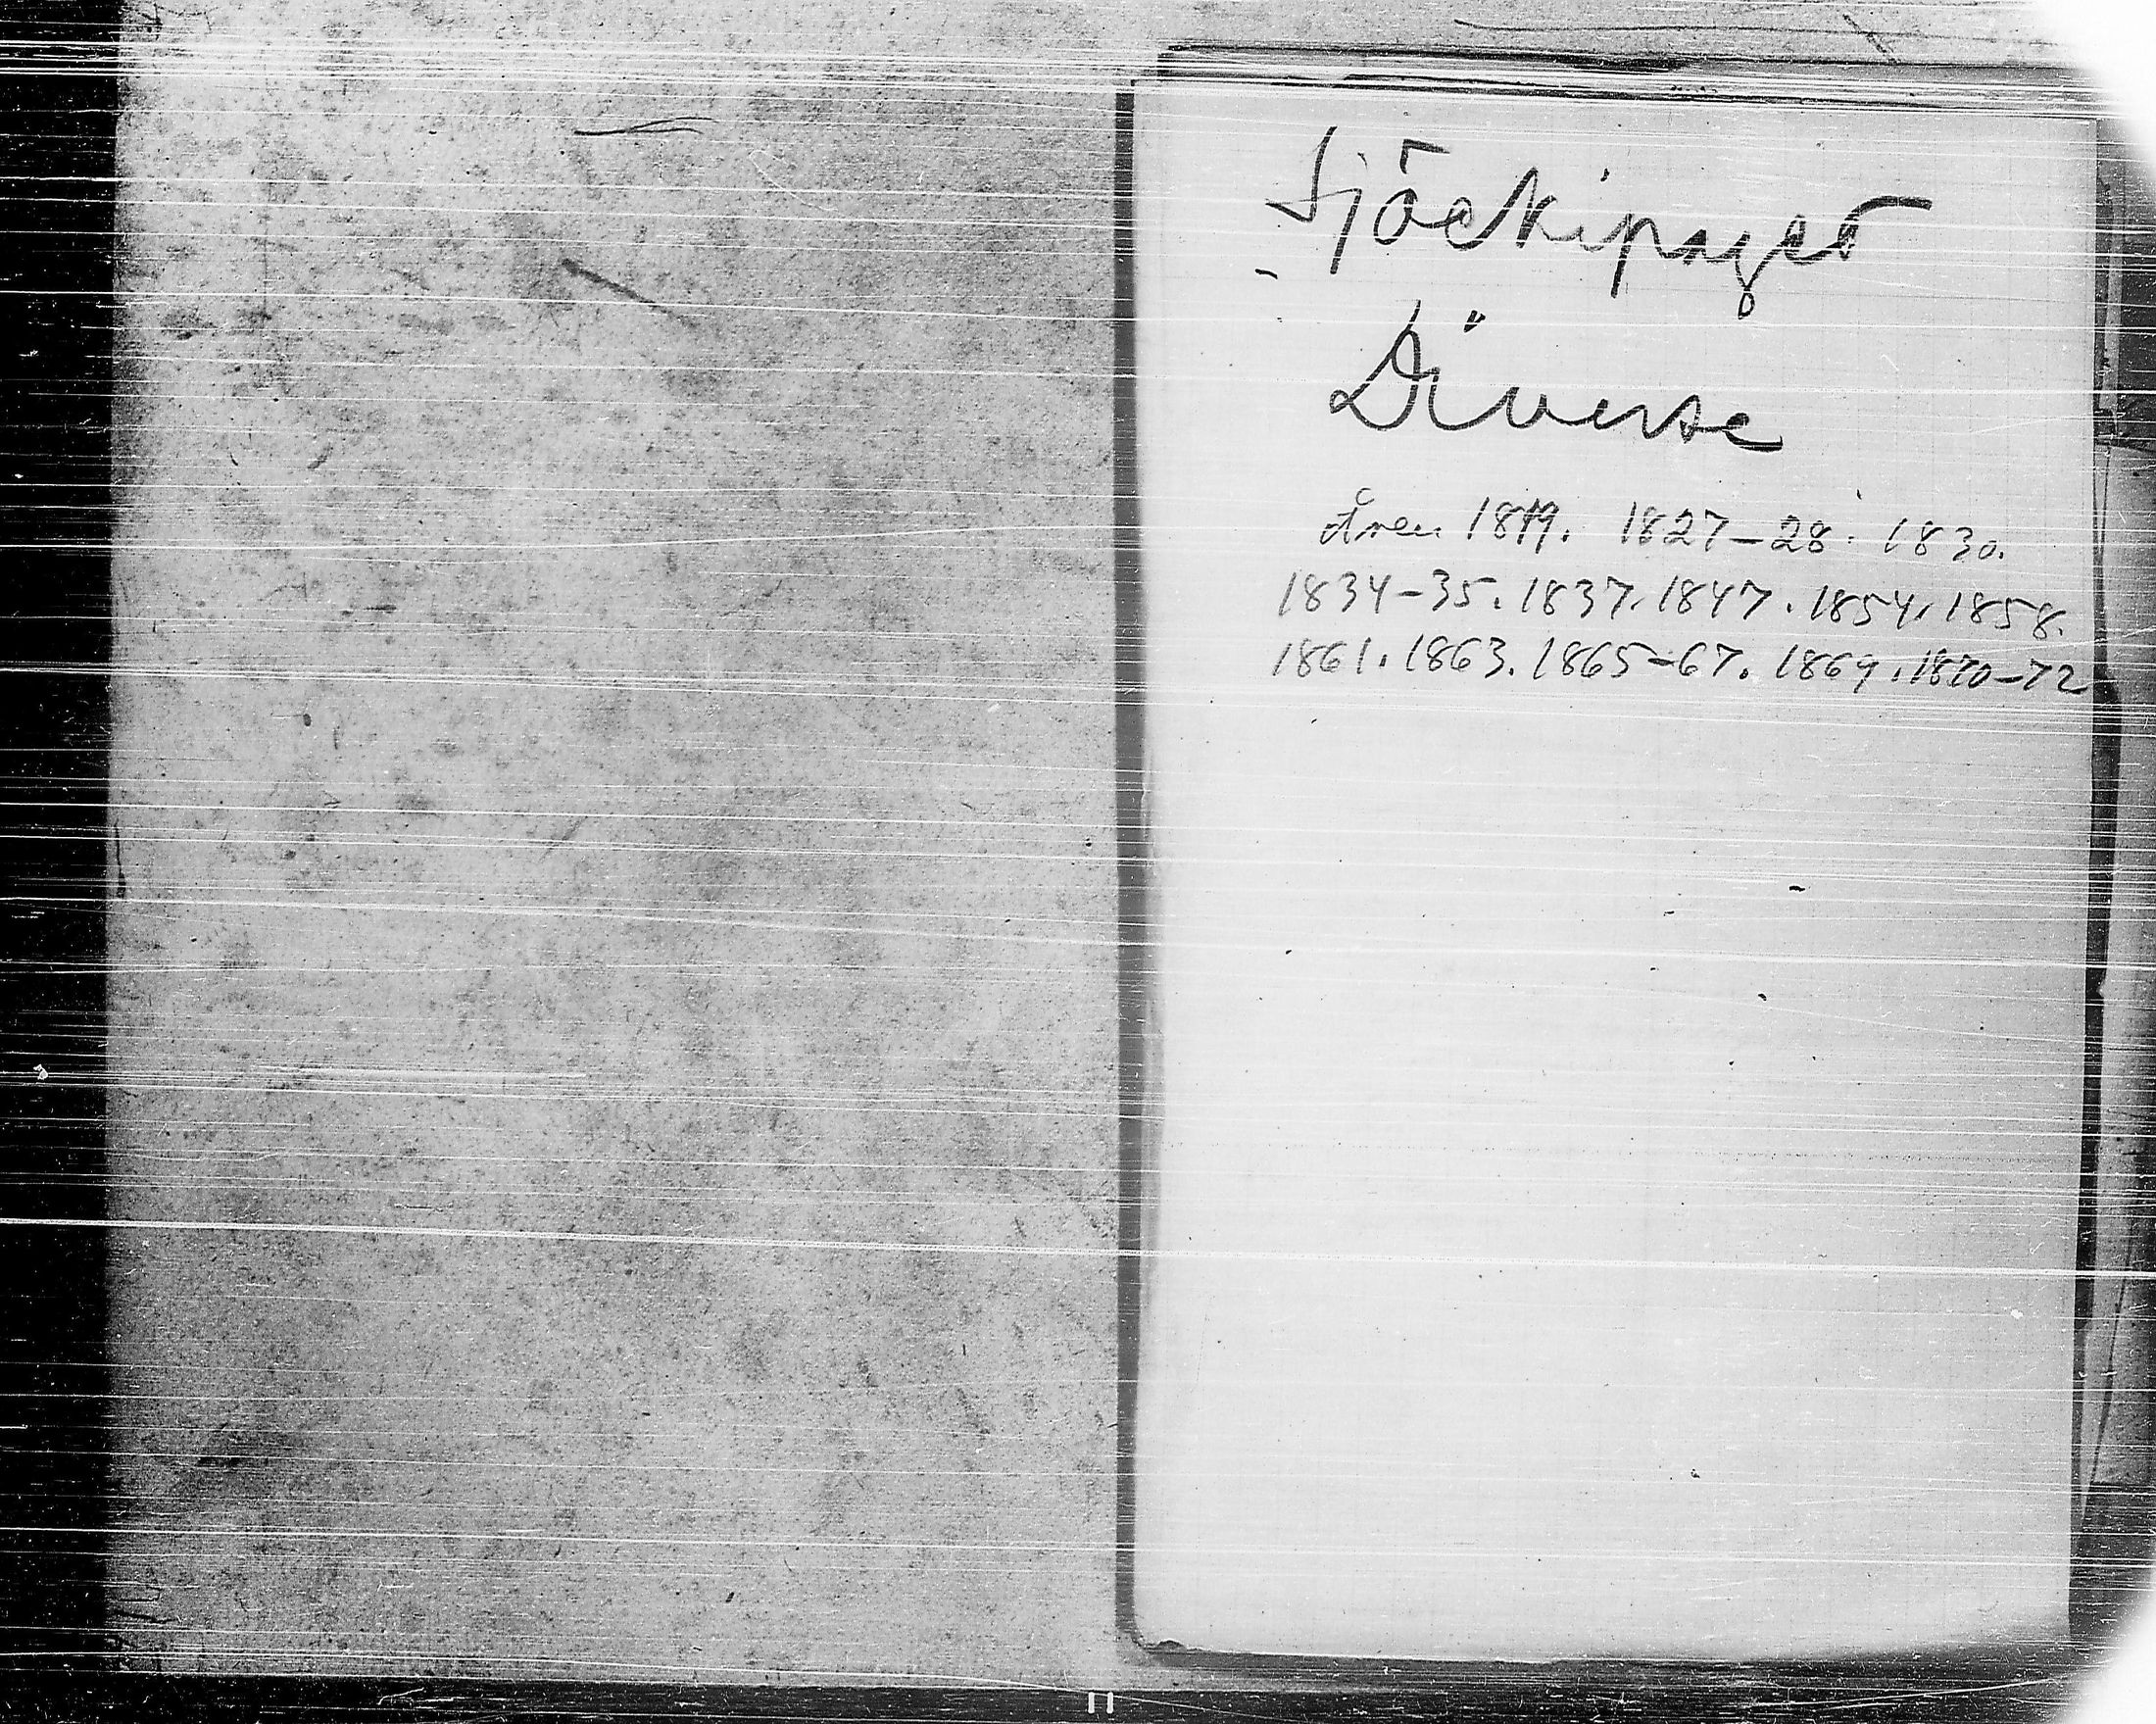 Sjöekipaget
Diverse
Åren 1819. 1827-28. 1830.
1834-35. 1837. 1847. 1854. 1858.
1861. 1863. 1865-67. 1869. 1870-72